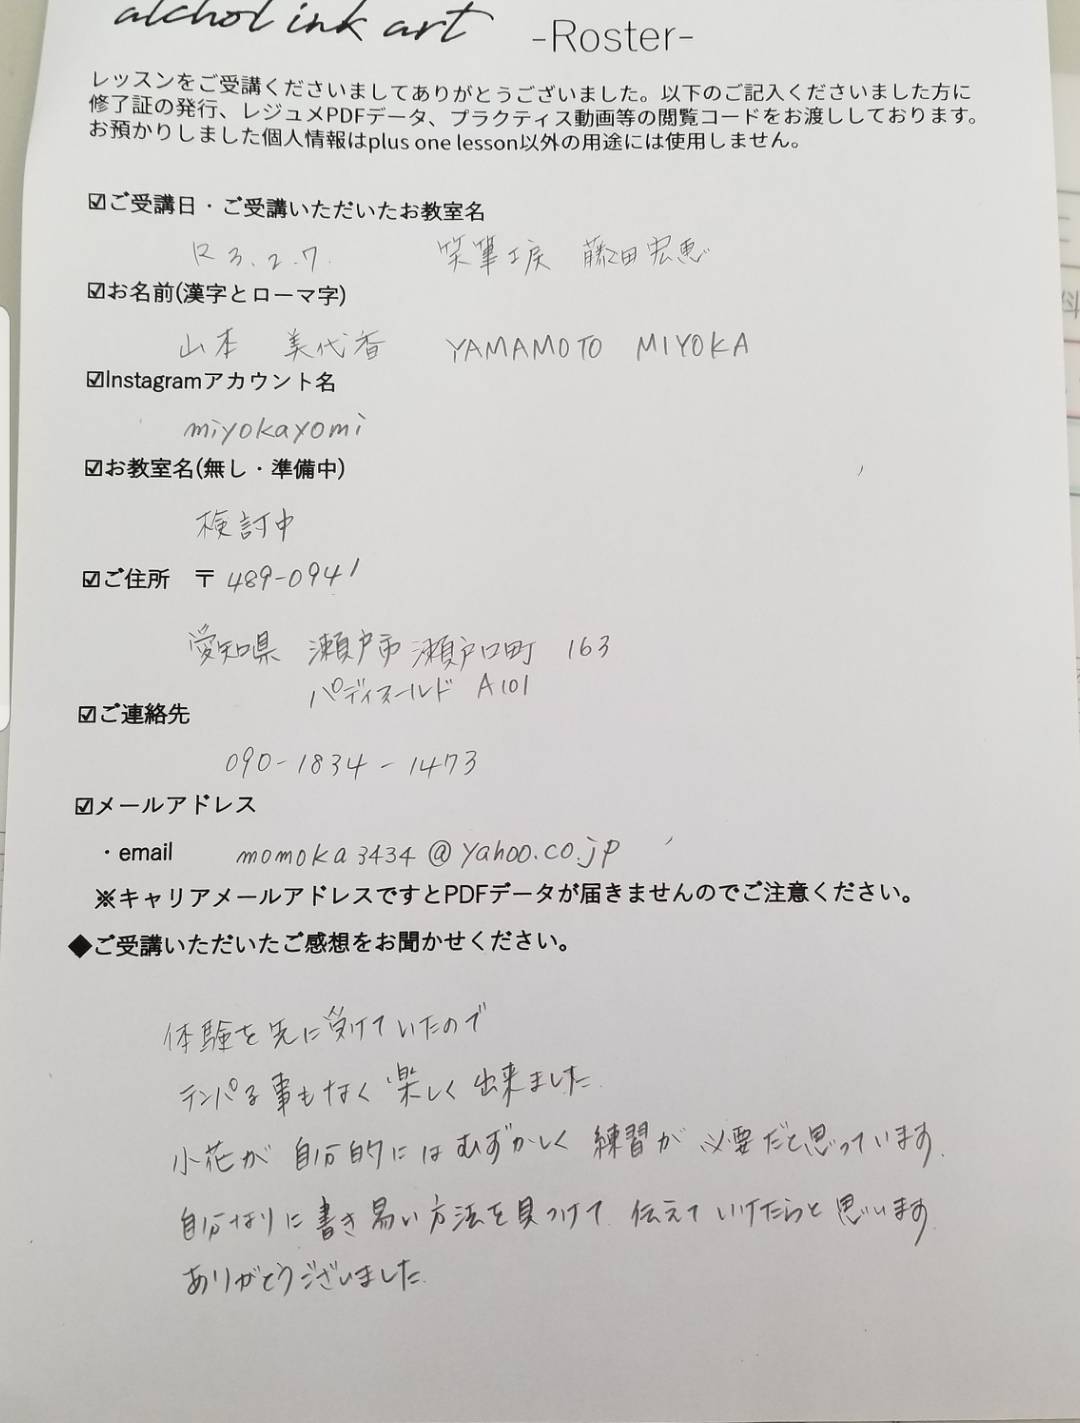 alchol ink art -Roster-
レッスンをご受講くださいましてありがとうございました。以下のご記入くださいました方に
修了証の発行、レジュメPDFデータ、プラクティス動画等の閲覧コードをお渡ししております。
お預かりしました個人情報はplus one lesson以外の用途には使用しません。
☑ご受講日・ご受講いただいたお教室名
R3.2.7. 笑筆工房 藤田宏恵
☑お名前(漢字とローマ字)
山本 美代香 YAMAMOTO MIYOKA
☑Instagramアカウント名
miyokayomi
☑お教室名(無し・準備中)
検討中
☑ご住所 〒489-0941
愛知県 瀬戸市瀬戸口町 163
パディスールド A101
☑ご連絡先
090-1834-1473
☑メールアドレス
・email momoka3434@yahoo.co.jp
※キャリアメールアドレスですとPDFデータが届きませんのでご注意ください。
◆ご受講いただいたご感想をお聞かせください。
体験を先に受けていたので
テンパる事もなく楽しく出来ました
小花が自分的にはむずかしく練習が必要だと思っています。
自分なりに書き易い方法を見つけて伝えていけたらと思います
ありがとうございました。
料